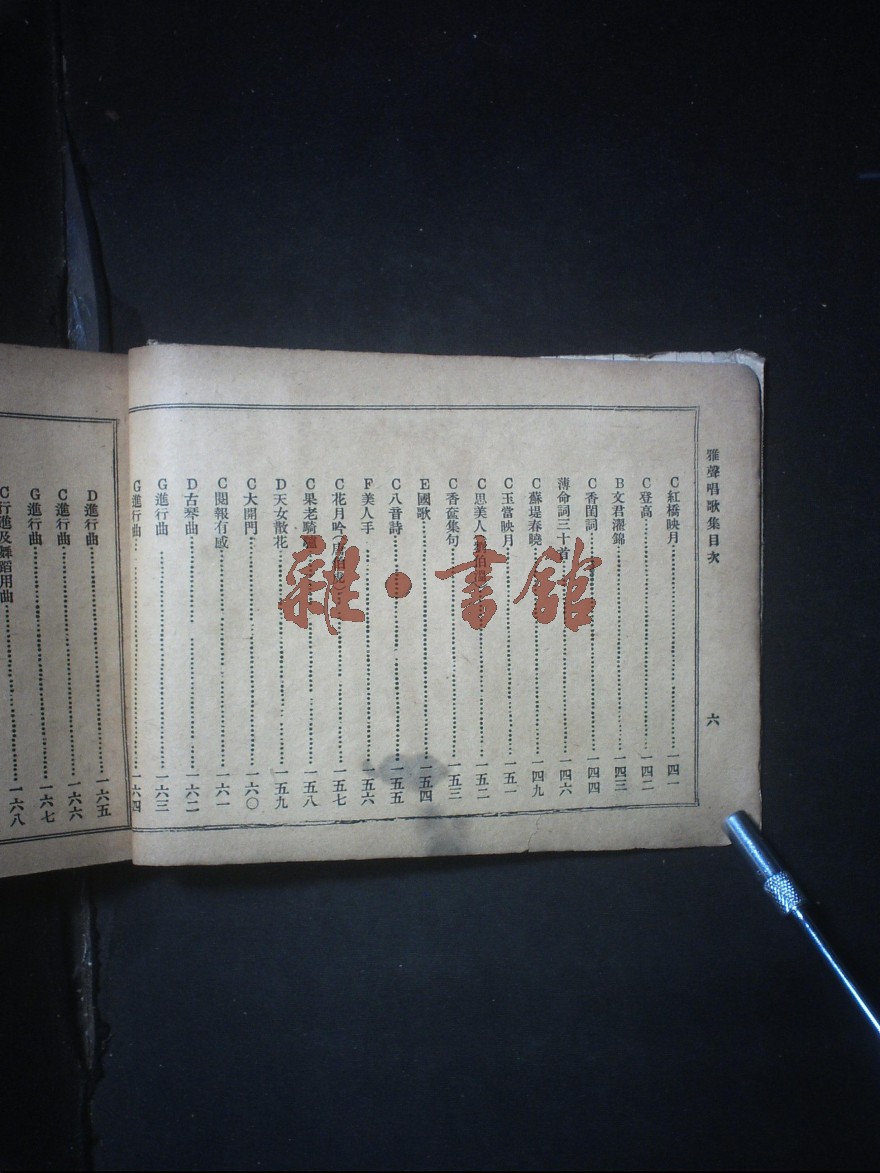 雅聲唱歌集目次
六
C紅橋映月 一四一
C登高 一四二
B文君濯錦 一四三
C香閨詞 一四四
薄命詞三十首 一四六
C蘇堤春曉 一四九
C玉當映月 一五一
C思美人 一五二
C香奩集句 一五三
E國歌 一五四
C八音詩 一五五
F美人手 一五六
C花月吟 一五七
C果老騎驢 一五八
D天女散花 一五九
C大開門 一六〇
C閱報有感 一六一
D古琴曲 一六二
G進行曲 一六三
G進行曲 一六四
D進行曲 一六五
C進行曲 一六六
G進行曲 一六七
C行進及舞蹈用曲 一六八
雜·書館